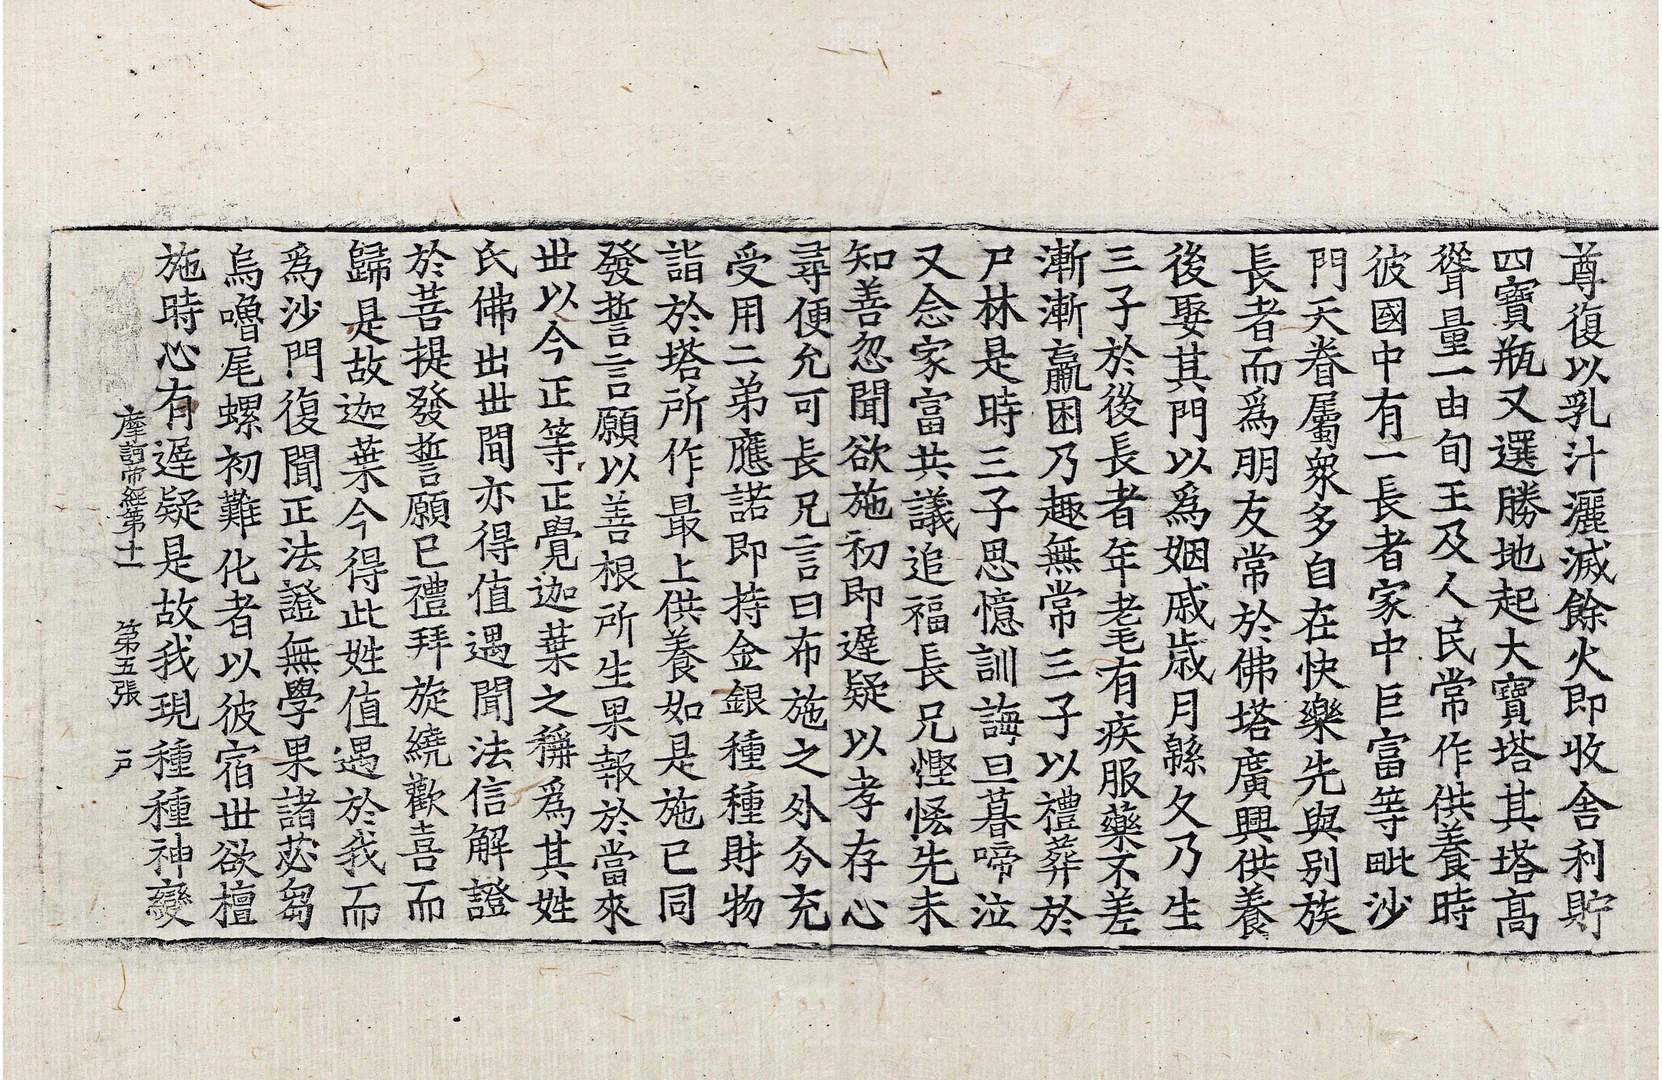 尊復以乳汁灑滅餘火即收舍利貯
四寶瓶又選勝地起大寶塔其塔高
聳量一由旬王及人民常作供養時
彼國中有一長者家中巨富等毗沙
門天眷屬衆多自在快樂先與別族
長者而爲朋友常於佛塔廣興供養
後娶其門以爲姻戚歲月緜久乃生
三子於後長者年老耄有疾服藥不差
漸漸羸困乃趣無常三子以禮葬於
尸林是時三子思憶訓誨旦暮啼泣
又念家富共議追福長兄慳恡先未
知善忽聞欲施初即遲疑以孝存心
尋便允可長兄言曰布施之外分充
受用二弟應諾即持金銀種種財物
詣於塔所作最上供養如是施已同
發誓言願以善根所生果報於當來
世以今正等正覺迦葉之稱爲其姓
氏佛出世間亦得值遇聞法信解證
於菩提發誓願已禮拜旋繞歡喜而
歸是故迦葉今得此姓值遇於我而
爲沙門復聞正法證無學果諸苾芻
烏嚕尾螺初難化者以彼宿世欲檀
施時心有遲疑是故我現種種神變
摩訶帝經第十一 第五張 戶